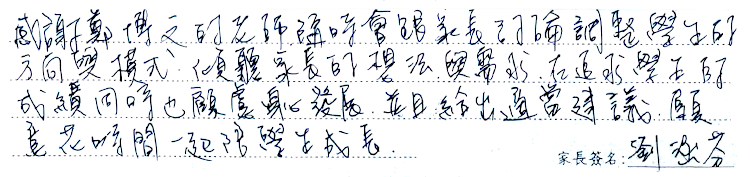 感謝鄭博文的老師隨時會跟家長討論調整學生的
方向與模式.傾聽家長的想法與需求.在追求學生的
成績同時也顧慮身心發展 並且給出適當建議.願
意花時間一起陪學生成長.
家長簽名:劉